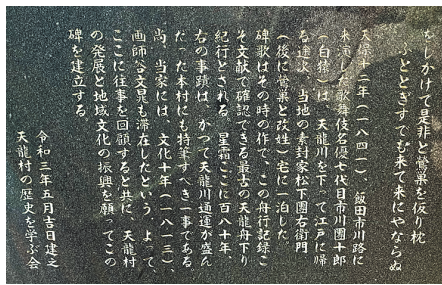 をしかけて是非と鶯巣を仮り枕
ふととぎすでも来て来にやならぬ
天保十二年(一八四一)、飯田市川路に
来演した歌舞伎名優七代目市川團十郎
(白猿)は、天龍川を下って江戸に帰
る途次、当地の素封家松下團左衛門
(後に鶯巣と改姓)宅に一泊した。
碑歌はその時の作で、この舟行記録こ
そ文献で確認できる最古の天龍舟下り
紀行とされる。星霜ここに百八十年、
右の事蹟は、かつて天龍川通運が盛ん
だった本村にも特筆すべき一事である
尚、当家には、文化十年(一八一三)、
画師谷文晁も滞在したという。よって、
ここに往事を回顧すると共に、天龍村
の発展と地域文化の振興を願ってこの
碑を建立する。
令和三年五月吉日建之
天龍村の歴史を学ぶ会